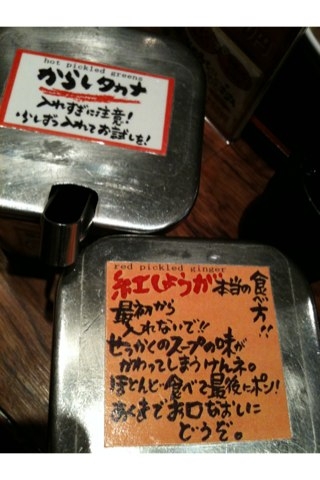 hot pickled greens
からしタカナ
入れすぎに注意!
少しずつ入れてお試しを!
red pickled ginger
紅しょうが本当の食べ方!!
最初から
入れないで!!
せっかくのスープの味が
かわってしまうけんネ。
ほとんど食べて最後にポン!
あくまでお口なおしに
どうぞ。